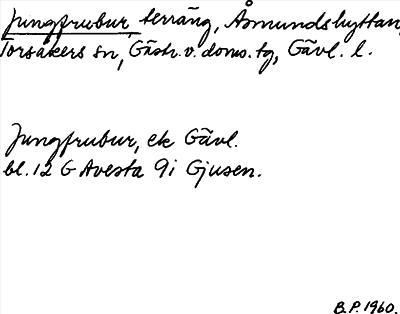 Jungfrubur terräng, Åsmundshyttan,
Torsåkers sn, Gästr. v. doms. tg, Gävl. l.
Jungfrubur, ek Gävl.
bl. 12 G Avesta 9i Gjusen.
B.P. 1960.